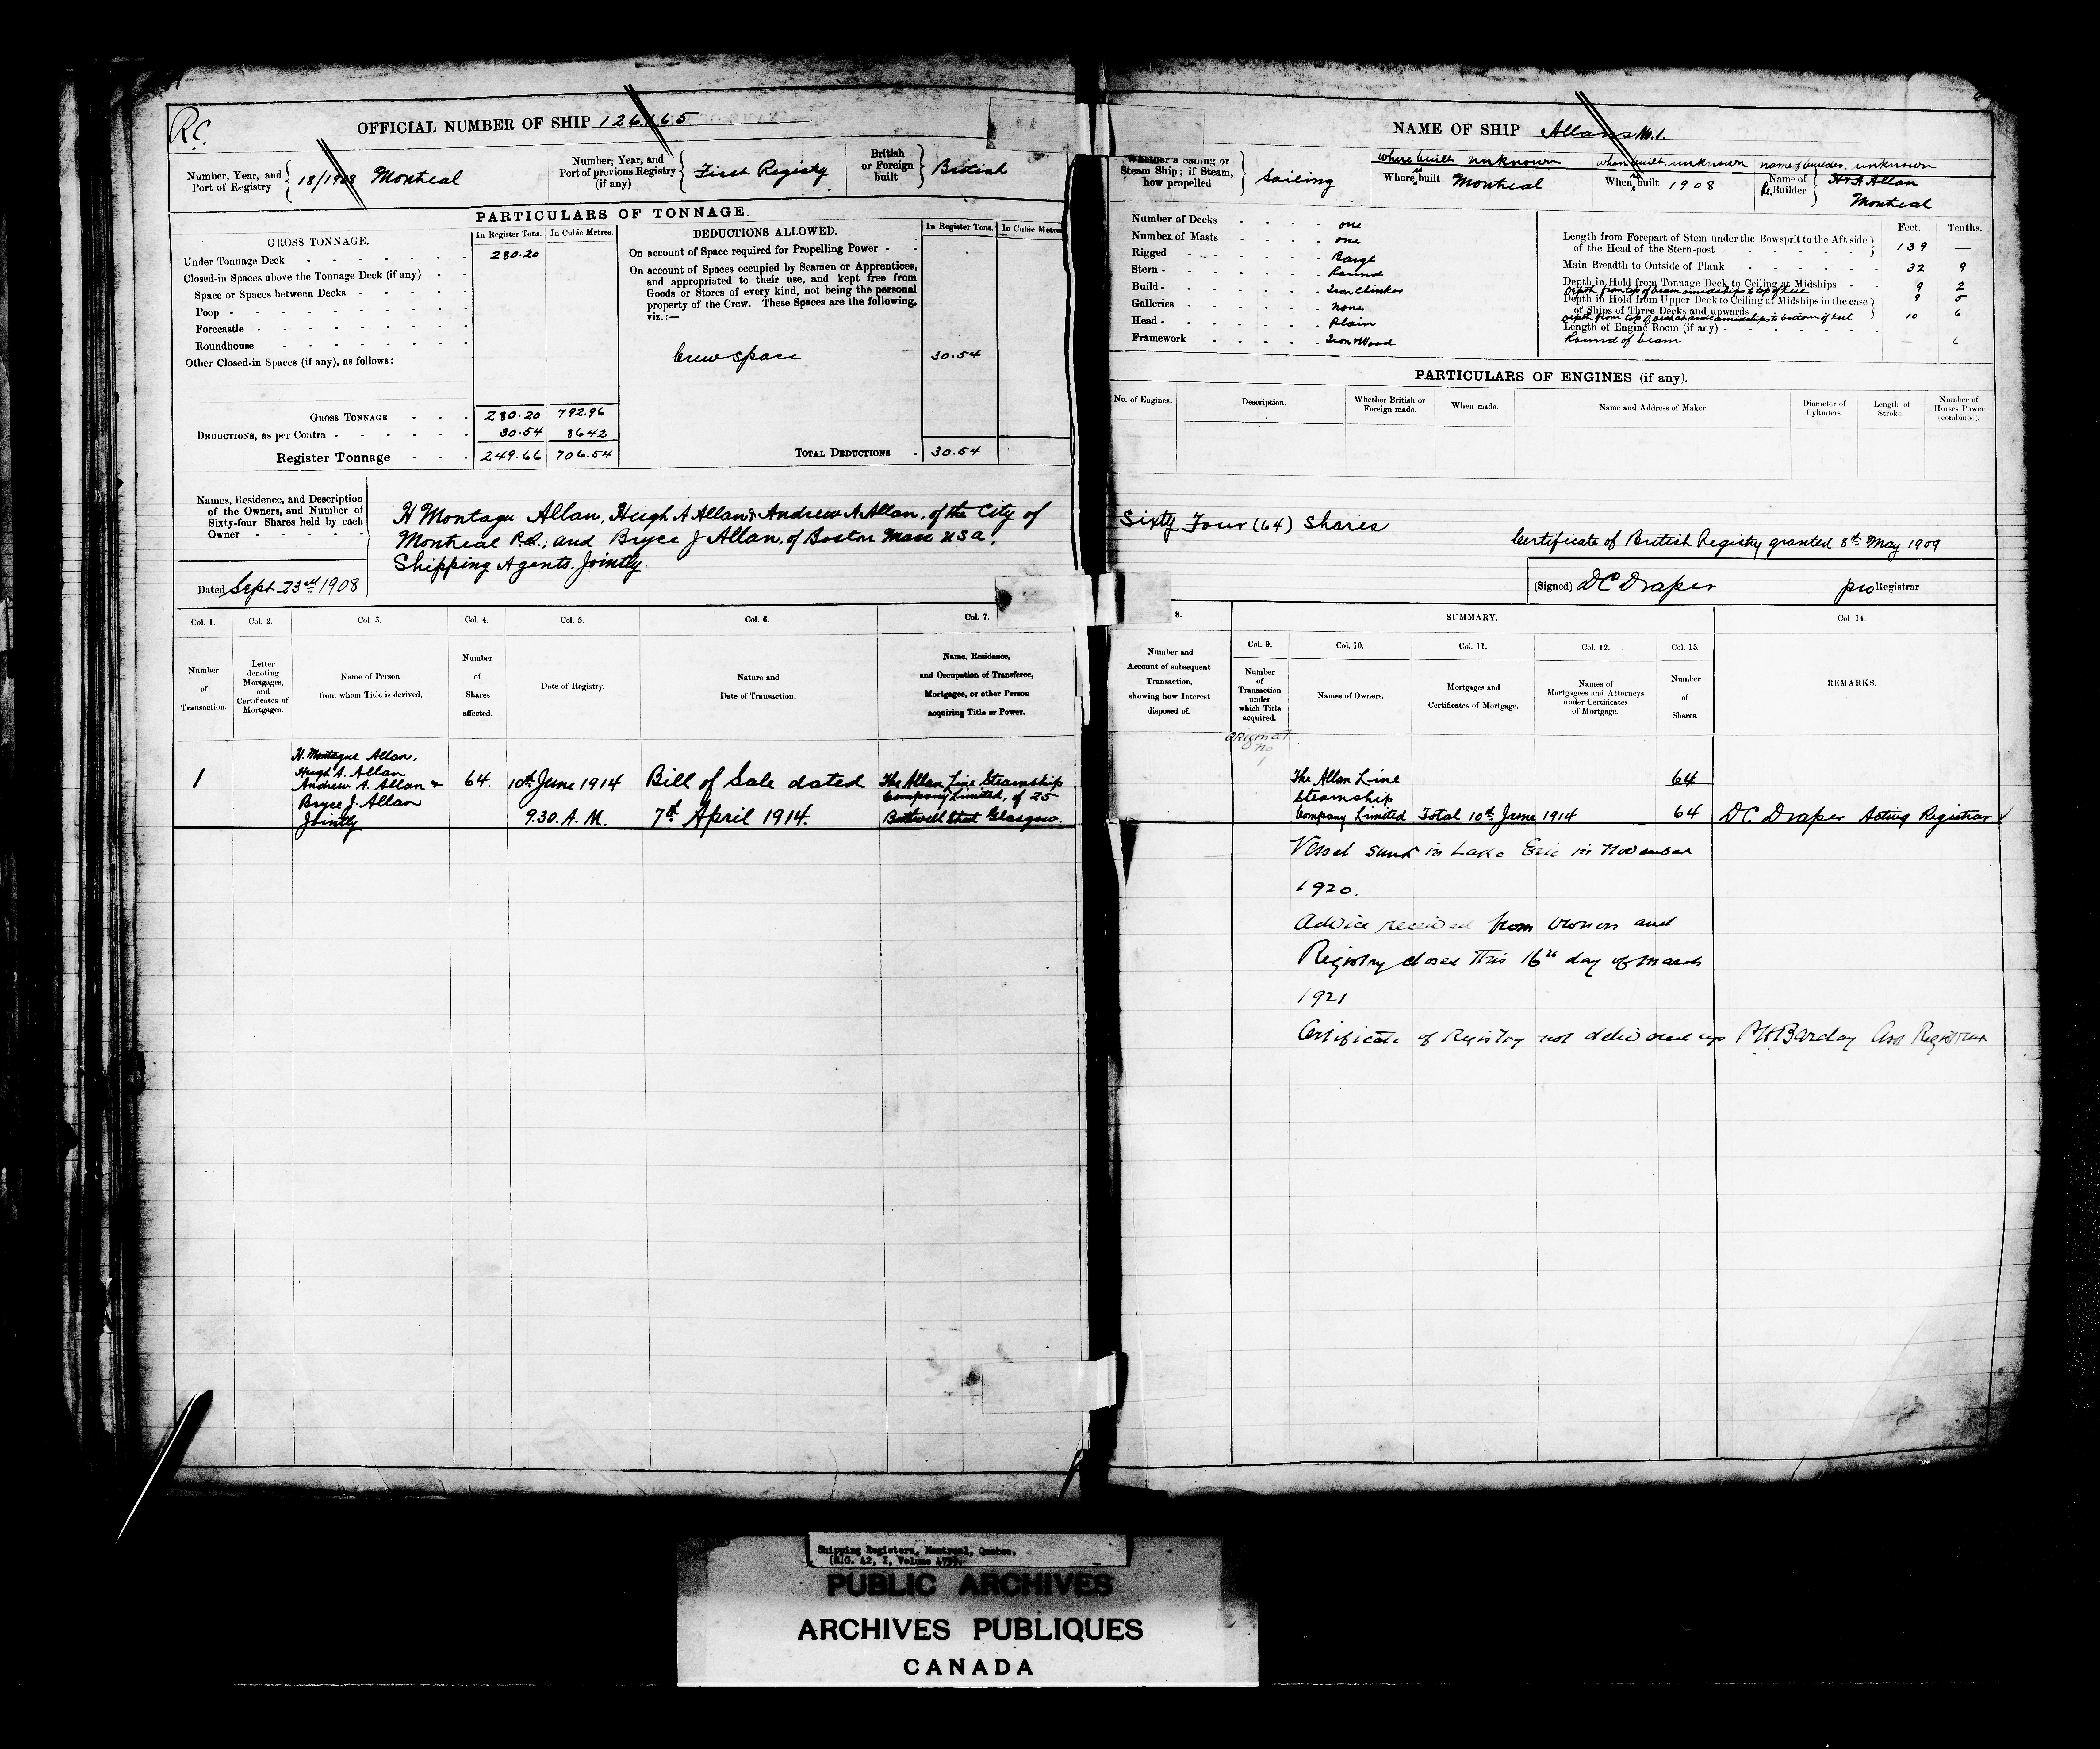 R.C.
OFFICIAL NUMBER OF SHIP
Number, Year, and Port of Registry 18/1908 Montreal
Number, Year, and Port of previous Registry (if any) First Registry
British or Foreign built British
PARTICULARS OF TONNAGE.
GROSS TONNAGE. In Register Tons. In Cubic Metres.
Under Tonnage Deck 280.20
Closed-in Spaces above the Tonnage Deck (if any)
Space or Spaces between Decks
Poop
Forecastle
Roundhouse
Other Closed-in Spaces (if any), as follows:
GROSS TONNAGE 280.20 792.96
DEDUCTIONS, as per Contra 30.54 86 42
Register Tonnage 249.66 706.54
DEDUCTIONS ALLOWED. In Register Tons. In Cubic Metres
On account of Space required for Propelling Power
On account of Spaces occupied by Seamen or Apprentices,
and appropriated to their use, and kept free from
Goods or Stores of every kind, not being the personal
property of the Crew. These Spaces are the following,
viz.:—
Crew space 30.54
TOTAL DEDUCTIONS 30.54
Names, Residence, and Description
of the Owners, and Number of
Sixty-four Shares held by each
Owner
H Montagu Allan, Hugh A Allan & Andrew A Allan, of the City of
Montreal P.Q.; and Bryce J Allan, of Boston Mass USA,
Shipping Agents. Jointly.
Dated Sept 23rd 1908
Col. 1. Col. 2. Col. 3. Col. 4. Col. 5. Col. 6. Col. 7.
Number of Transaction.
Letter denoting Mortgages, and Certificates of Mortgages.
Name of Person from whom Title is derived.
Number of Shares affected.
Date of Registry.
Nature and Date of Transaction.
Name, Residence, and Occupation of Transferee, Mortgagee, or other Person acquiring Title or Power.
1
H. Montague Allan,
Hugh A. Allan
Andrew A. Allan &
Bryce J. Allan
Jointly
64.
10th June 1914
9.30. A. M.
Bill of Sale dated
7th April 1914.
The Allan Line Steamship
Company Limited, of 25
Bothwell Street Glasgow.
NAME OF SHIP Allans No. 1.
Whether a Sailing or Steam Ship; if Steam, how propelled Sailing
where built unknown when built unknown name of builder, unknown
Where re built Montreal
When re built 1908
Name of Re Builder H & A Allan
Montreal
Number of Decks one
Number of Masts one
Rigged Barge
Stern Round
Build Iron Clinker
Galleries none
Head Plain
Framework Iron & Wood
Feet. Tenths.
Length from Forepart of Stem under the Bowsprit to the Aft side
of the Head of the Stern-post 139 —
Main Breadth to Outside of Plank 32 9
Depth in Hold from Tonnage Deck to Ceiling at Midships 9 2
Depth from top of beam amidships to top of keel 9 5
Depth in Hold from Upper Deck to Ceiling at Midships in the case
of Ships of Three Decks and upwards
Depth from top of deck at side amidships to bottom of keel 10 6
Length of Engine Room (if any)
Round of beam — 6
PARTICULARS OF ENGINES (if any).
No. of Engines. Description. Whether British or Foreign made. When made. Name and Address of Maker. Diameter of Cylinders. Length of Stroke. Number of Horses Power (combined).
Sixty Four (64) Shares
Certificate of British Registry granted 8th May 1909
(Signed) D C Draper pro Registrar
8. SUMMARY. Col 14.
Col. 9. Col. 10. Col. 11. Col. 12. Col. 13.
Number and Account of subsequent Transaction, showing how Interest disposed of.
Number of Transaction under which Title acquired.
Names of Owners.
Mortgages and Certificates of Mortgage.
Names of Mortgagees and Attorneys under Certificates of Mortgage.
Number of Shares.
REMARKS.
original
no
1
The Allan Line 64
Steamship
Company Limited Total 10th June 1914 64 D C. Draper Acting Registrar
Vessel sunk in Lake Erie in November
1920.
Advice received from owners and
Registry closed this 16th day of March
1921
Certificate of Registry not delivered up Barclay Registrar
Shipping Registers, Montreal, Quebec.
PUBLIC ARCHIVES
ARCHIVES PUBLIQUES
CANADA